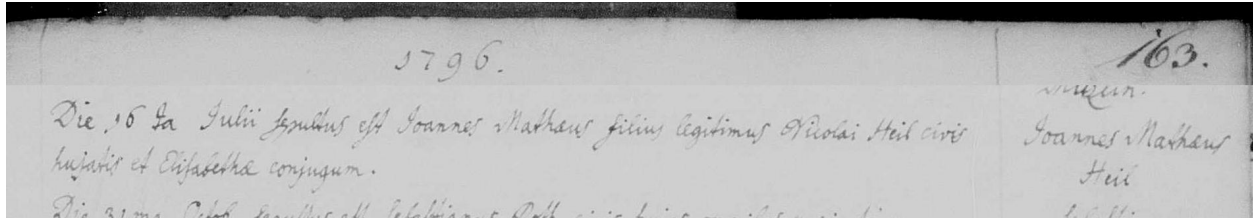 1796.
163.
Die 16 ta Julii sepultus est Joannes Mathæus filius legitimus Nicolai Heil civis
hujatis et Elisabethæ conjugum.
Joannes Mathæus
Heil
Die 31 ma Octob. sepultus est Sebastianus